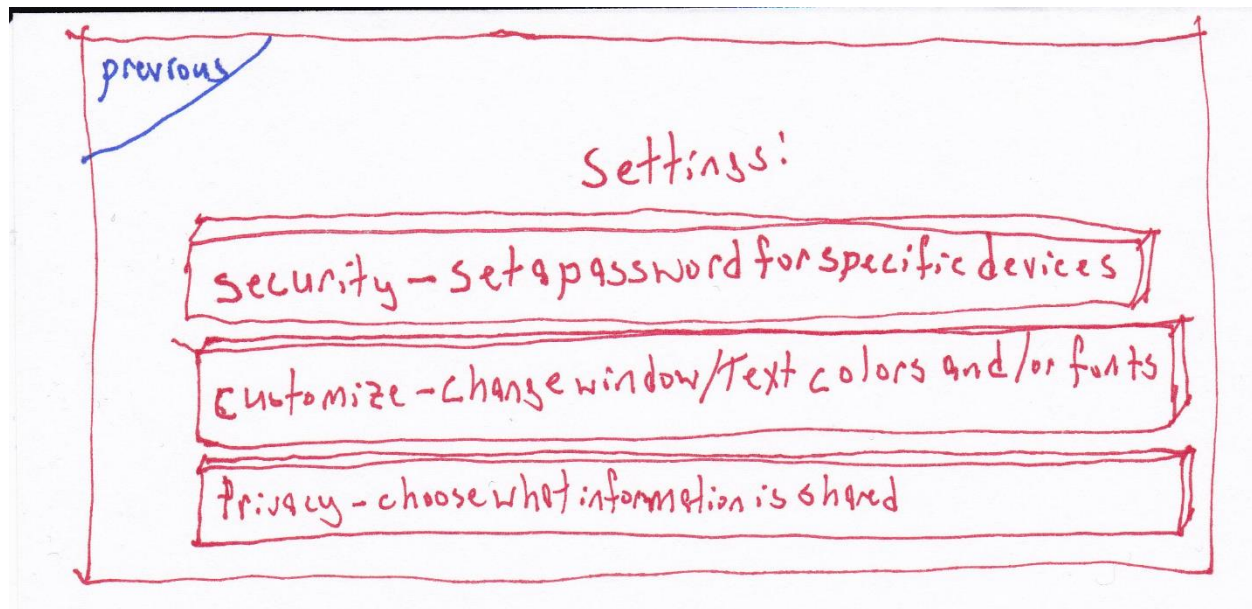 previous
Settings:
Security - Set a password for specific devices
Customize - Change window/Text colors and/or fonts
Privacy - choose what information is shared